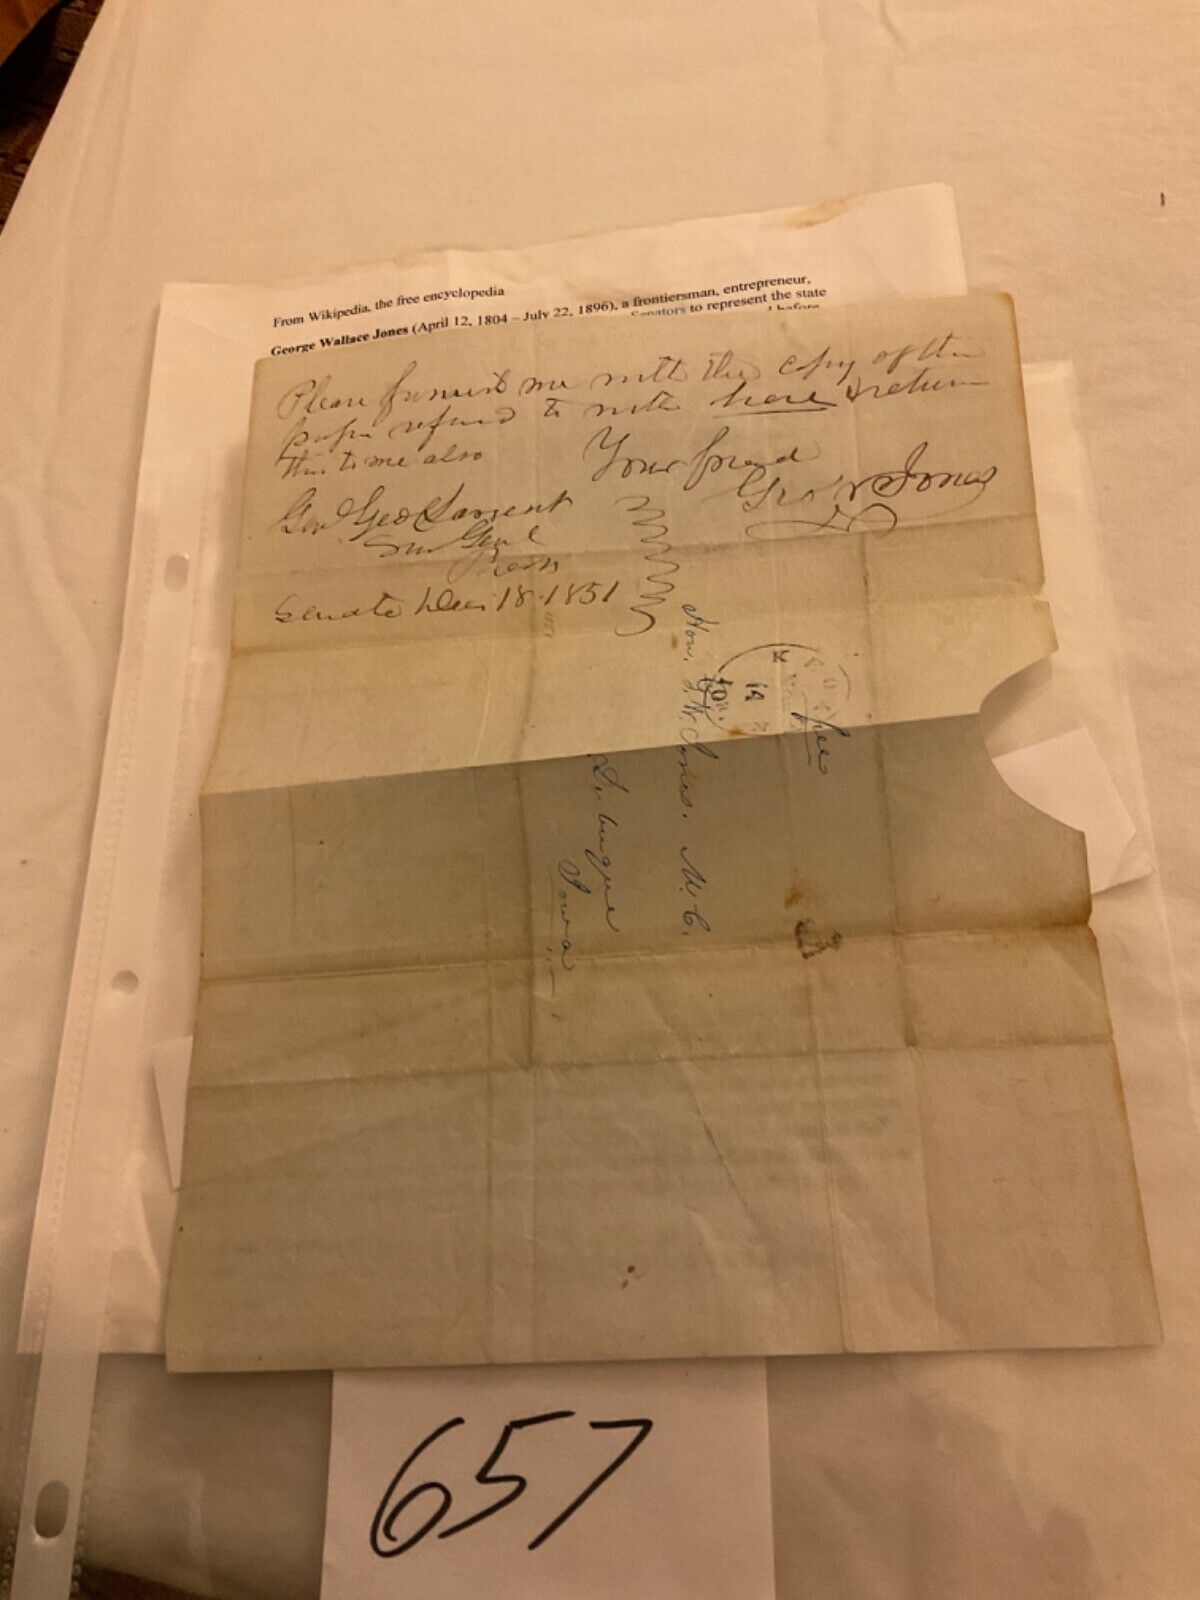 From Wikipedia, the free encyclopedia
George Wallace Jones (April 12, 1804 – July 22, 1896), a frontiersman, entrepreneur,
Senators to represent the state
Please furnish me with the copy of the
paper refured to with here & return
this to me also
Your friend
Geo W Jones
Genl Geo Sargent
Sur Genl
Senate Dec 18. 1851
Hon. G. W. Jones. M. C.
Dubuque
Iowa
free
19
657